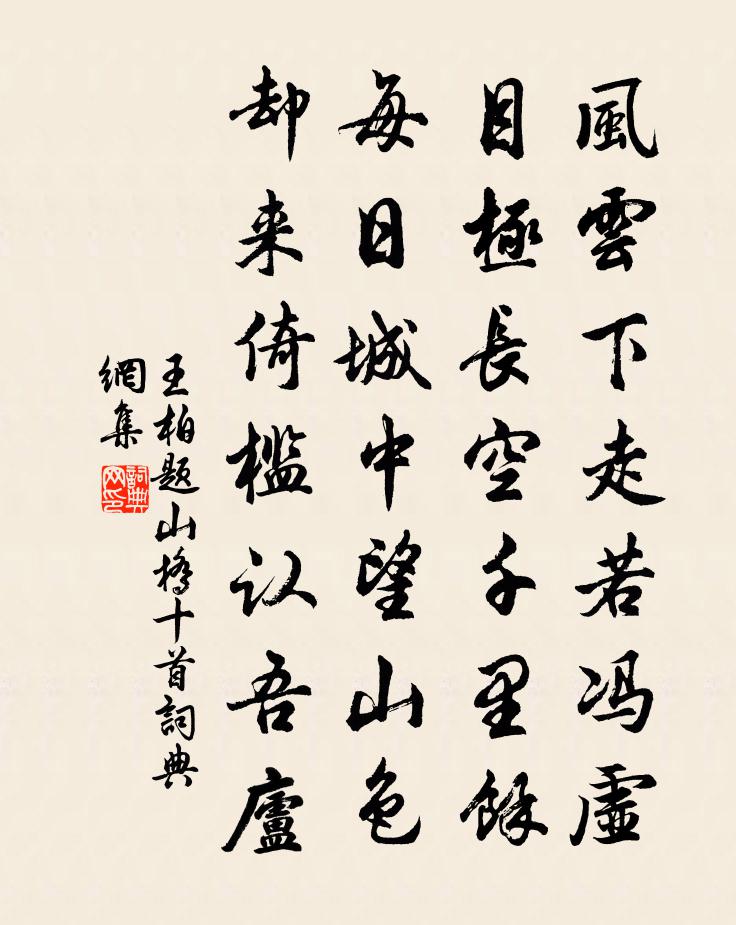 風雲下走若冯虛
目極長空千里餘
每日城中望山色
却来倚檻认吾廬
王柏题山橋十首詞典
網集
詞典
网印